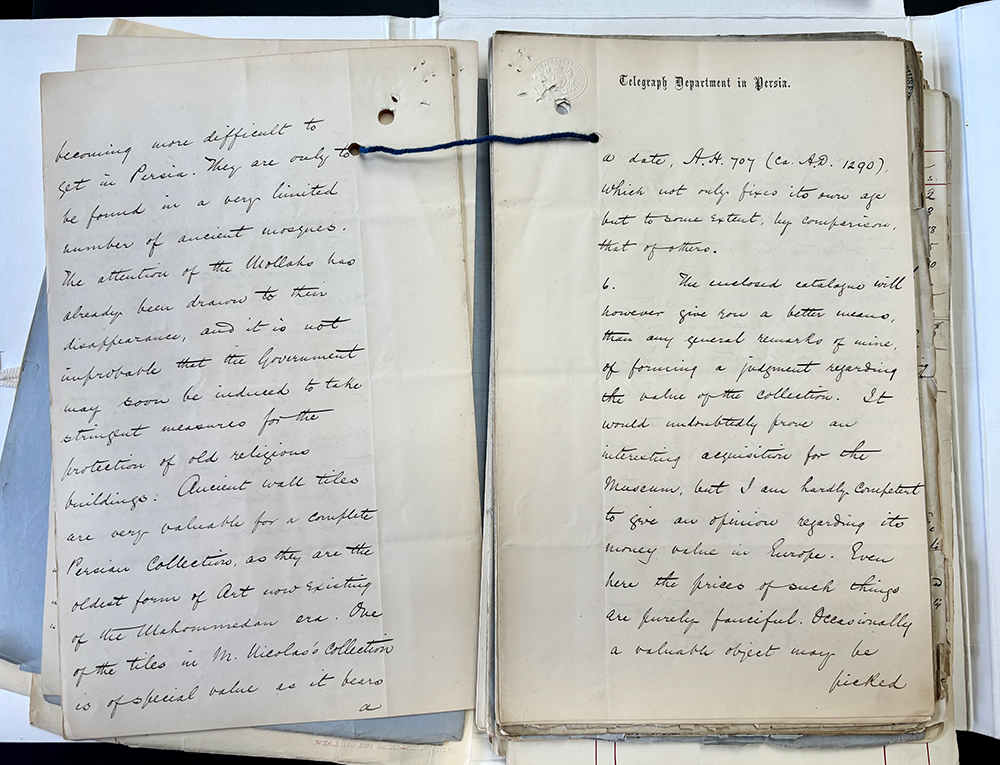 becoming more difficult to
get in Persia. They are only to
be found in a very limited
number of ancient mosques.
The attention of the Mollahs has
already been drawn to their
disappearance, and it is not
improbable that the Government
may soon be induced to take
stringent measures for the
protection of old religious
buildings. Ancient wall tiles
are very valuable for a complete
Persian Collection, as they are the
oldest form of Art now existing
of the Mahommedan era. One
of the tiles in M. Nicolas's Collection
is of special value as it bears
a
Telegraph Department in Persia.
a date, A.H. 707 (ca. A.D. 1290),
which not only fixes its own age
but to some extent, by comparison,
that of others.
6. The enclosed catalogue will
however give you a better means,
than any general remarks of mine,
of forming a judgment regarding
the value of the collection. It
would undoubtedly prove an
interesting acquisition for the
Museum, but I am hardly competent
to give an opinion regarding its
money value in Europe. Even
here the prices of such things
are purely fanciful. Occasionally
a valuable object may be
picked